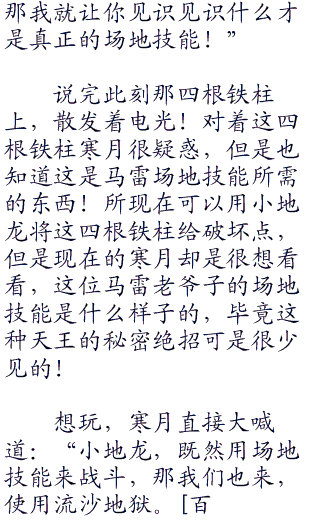 那我就让你见识见识什么才
是真正的场地技能！”
说完此刻那四根铁柱
上，散发着电光！对着这四
根铁柱寒月很疑惑，但是也
知道这是马雷场地技能所需
的东西！所现在可以用小地
龙将这四根铁柱给破坏点，
但是现在的寒月却是很想看
看，这位马雷老爷子的场地
技能是什么样子的，毕竟这
种天王的秘密绝招可是很少
见的！
想玩，寒月直接大喊
道：“小地龙，既然用场地
技能来战斗，那我们也来，
使用流沙地狱。[百